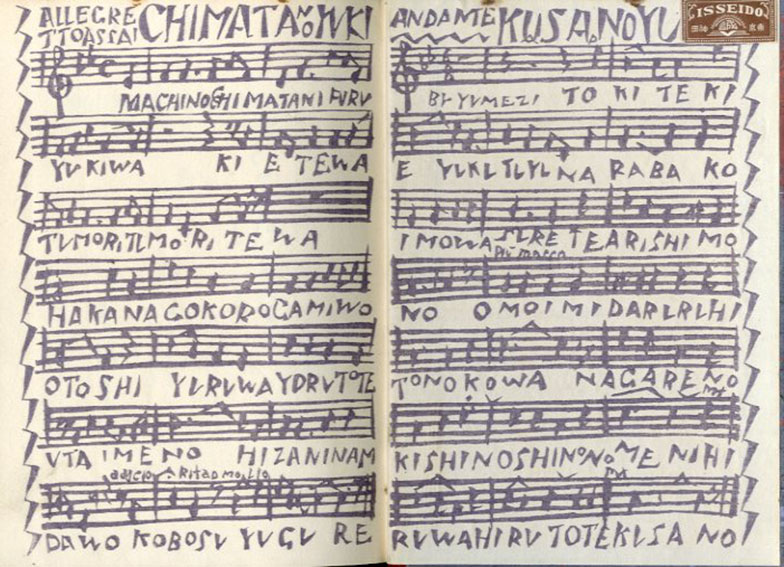 ALLEGRE
TTOASSAI
CHIMATA NO YUKI
MACHINO CHIMATANI FURU
YUKIWA KI E TEWA
TUMORITUMORITEWA
HAKANAGOKOROGAMIWO
OTOSHI YURUWAYORUTOTE
UTAIMENO HIZANINAM
adagio Ritad molto
DAWO KOBOSU YUGU RE
ANDANTE
KUSA NO YU
ISSEIDO
BY YUMEZI TO KI TE KI
E YUKU NA RABA KO
IMOWA SURE TEARISHIMO
Piu mosso
NO OMOIMIDARURUHI
TONOKOWA NAGARENO
KISHINOSHINONOMENIHI
RUWAHIRUTOTEKUSANO